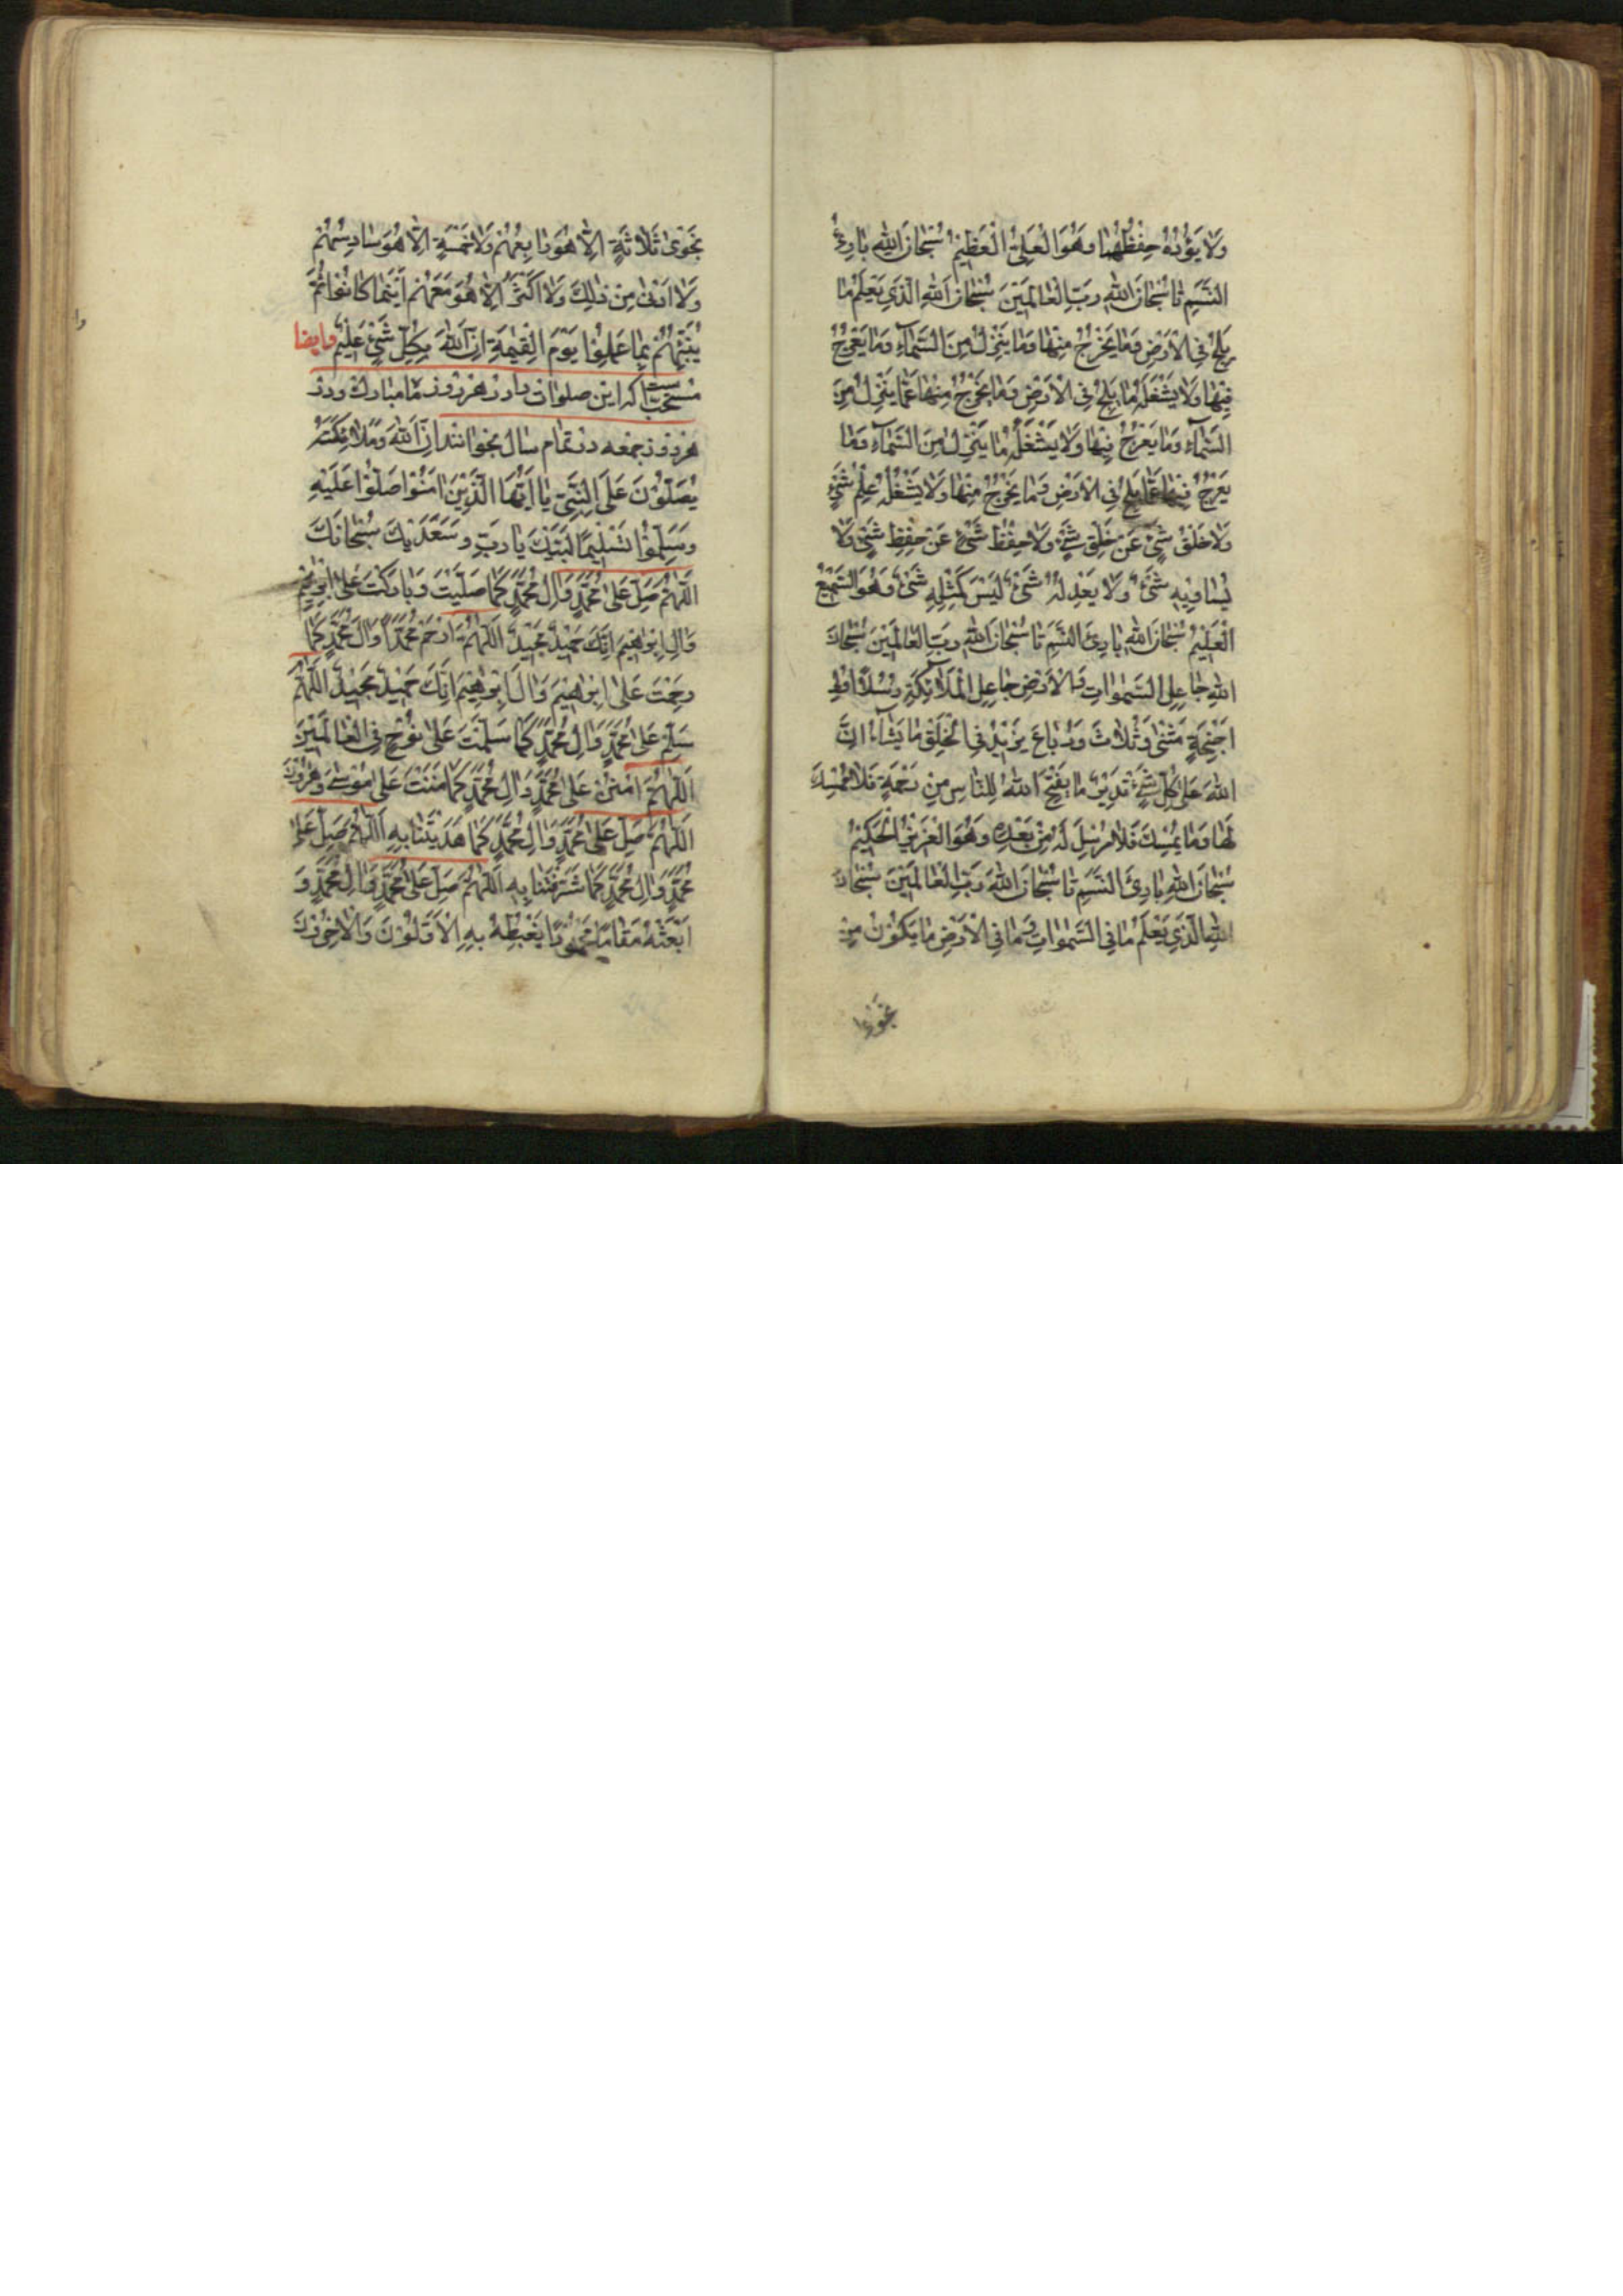 وَلَا يَؤُدُهُ حِفْظُهُمَا وَهُوَ الْعَلِيُّ الْعَظِيمُ سُبْحَانَ اللهِ بَارِئِ
النَّسَمِ تا سُبْحَانَ اللهِ رَبِّ الْعَالَمِينَ سُبْحَانَ اللهِ الَّذِي يَعْلَمُ مَا
يَلِجُ فِي الْأَرْضِ وَمَا يَخْرُجُ مِنْهَا وَمَا يَنْزِلُ مِنَ السَّمَاءِ وَمَا يَعْرُجُ
فِيهَا وَلَا يَشْغَلُهُ مَا يَلِجُ فِي الْأَرْضِ وَمَا يَخْرُجُ مِنْهَا عَمَّا يَنْزِلُ مِنَ
السَّمَاءِ وَمَا يَعْرُجُ فِيهَا وَلَا يَشْغَلُهُ مَا يَنْزِلُ مِنَ السَّمَاءِ وَمَا
يَعْرُجُ فِيهَا عَمَّا يَلِجُ فِي الْأَرْضِ وَمَا يَخْرُجُ مِنْهَا وَلَا يَشْغَلُهُ عِلْمُ شَيْءٍ
وَلَا خَلْقُ شَيْءٍ عَنْ خَلْقِ شَيْءٍ وَلَا حِفْظُ شَيْءٍ عَنْ حِفْظِ شَيْءٍ وَلَا
يُسَاوِيهِ شَيْءٌ وَلَا يَعْدِلُهُ شَيْءٌ لَيْسَ كَمِثْلِهِ شَيْءٌ وَهُوَ السَّمِيعُ
الْعَلِيمُ سُبْحَانَ اللهِ بَارِئِ النَّسَمِ تا سُبْحَانَ اللهِ رَبِّ الْعَالَمِينَ سُبْحَانَ
اللهِ جَاعِلِ السَّمٰوَاتِ وَالْأَرْضِ جَاعِلِ الْمَلَائِكَةِ رُسُلًا أُولِي
أَجْنِحَةٍ مَثْنَى وَثُلَاثَ وَرُبَاعَ يَزِيدُ فِي الْخَلْقِ مَا يَشَاءُ إِنَّ
اللهَ عَلَى كُلِّ شَيْءٍ قَدِيرٌ مَا يَفْتَحِ اللهُ لِلنَّاسِ مِنْ رَحْمَةٍ فَلَا مُمْسِكَ
لَهَا وَمَا يُمْسِكْ فَلَا مُرْسِلَ لَهُ مِنْ بَعْدِهِ وَهُوَ الْعَزِيزُ الْحَكِيمُ
سُبْحَانَ اللهِ بَارِئِ النَّسَمِ تا سُبْحَانَ اللهِ رَبِّ الْعَالَمِينَ سُبْحَانَ
اللهِ الَّذِي يَعْلَمُ مَا فِي السَّمٰوَاتِ وَمَا فِي الْأَرْضِ مَا يَكُونُ مِنْ
نَجْوَى ثَلَاثَةٍ إِلَّا هُوَ رَابِعُهُمْ وَلَا خَمْسَةٍ إِلَّا هُوَ سَادِسُهُمْ
وَلَا أَدْنَى مِنْ ذٰلِكَ وَلَا أَكْثَرَ إِلَّا هُوَ مَعَهُمْ أَيْنَمَا كَانُوا ثُمَّ
يُنَبِّئُهُمْ بِمَا عَمِلُوا يَوْمَ الْقِيٰمَةِ إِنَّ اللهَ بِكُلِّ شَيْءٍ عَلِيمٌ وايضا
مستحبست كه اين صلوات را در هر روز ماه مبارك و در
هر روز جمعه در تمام سال بخوانند إِنَّ اللهَ وَمَلَائِكَتَهُ
يُصَلُّونَ عَلَى النَّبِيِّ يَا أَيُّهَا الَّذِينَ آمَنُوا صَلُّوا عَلَيْهِ
وَسَلِّمُوا تَسْلِيمًا لَبَّيْكَ يَا رَبِّ وَسَعْدَيْكَ سُبْحَانَكَ
اللّٰهُمَّ صَلِّ عَلَى مُحَمَّدٍ وَآلِ مُحَمَّدٍ كَمَا صَلَّيْتَ وَبَارَكْتَ عَلَى إِبْرٰهِيمَ
وَآلِ إِبْرٰهِيمَ إِنَّكَ حَمِيدٌ مَجِيدٌ اللّٰهُمَّ ارْحَمْ مُحَمَّدًا وَآلَ مُحَمَّدٍ كَمَا
رَحِمْتَ عَلَى إِبْرٰهِيمَ وَآلَ إِبْرٰهِيمَ إِنَّكَ حَمِيدٌ مَجِيدٌ اللّٰهُمَّ
سَلِّمْ عَلَى مُحَمَّدٍ وَآلِ مُحَمَّدٍ كَمَا سَلَّمْتَ عَلَى نُوحٍ فِي الْعَالَمِينَ
اللّٰهُمَّ امْنُنْ عَلَى مُحَمَّدٍ وَآلِ مُحَمَّدٍ كَمَا مَنَنْتَ عَلَى مُوسَى وَهٰرُونَ
اللّٰهُمَّ صَلِّ عَلَى مُحَمَّدٍ وَآلِ مُحَمَّدٍ كَمَا هَدَيْتَنَا بِهِ اللّٰهُمَّ صَلِّ عَلَى
مُحَمَّدٍ وَآلِ مُحَمَّدٍ كَمَا شَرَّفْتَنَا بِهِ اللّٰهُمَّ صَلِّ عَلَى مُحَمَّدٍ وَآلِ مُحَمَّدٍ وَ
ابْعَثْهُ مَقَامًا مَحْمُودًا يَغْبِطُهُ بِهِ الْأَوَّلُونَ وَالْآخِرُونَ